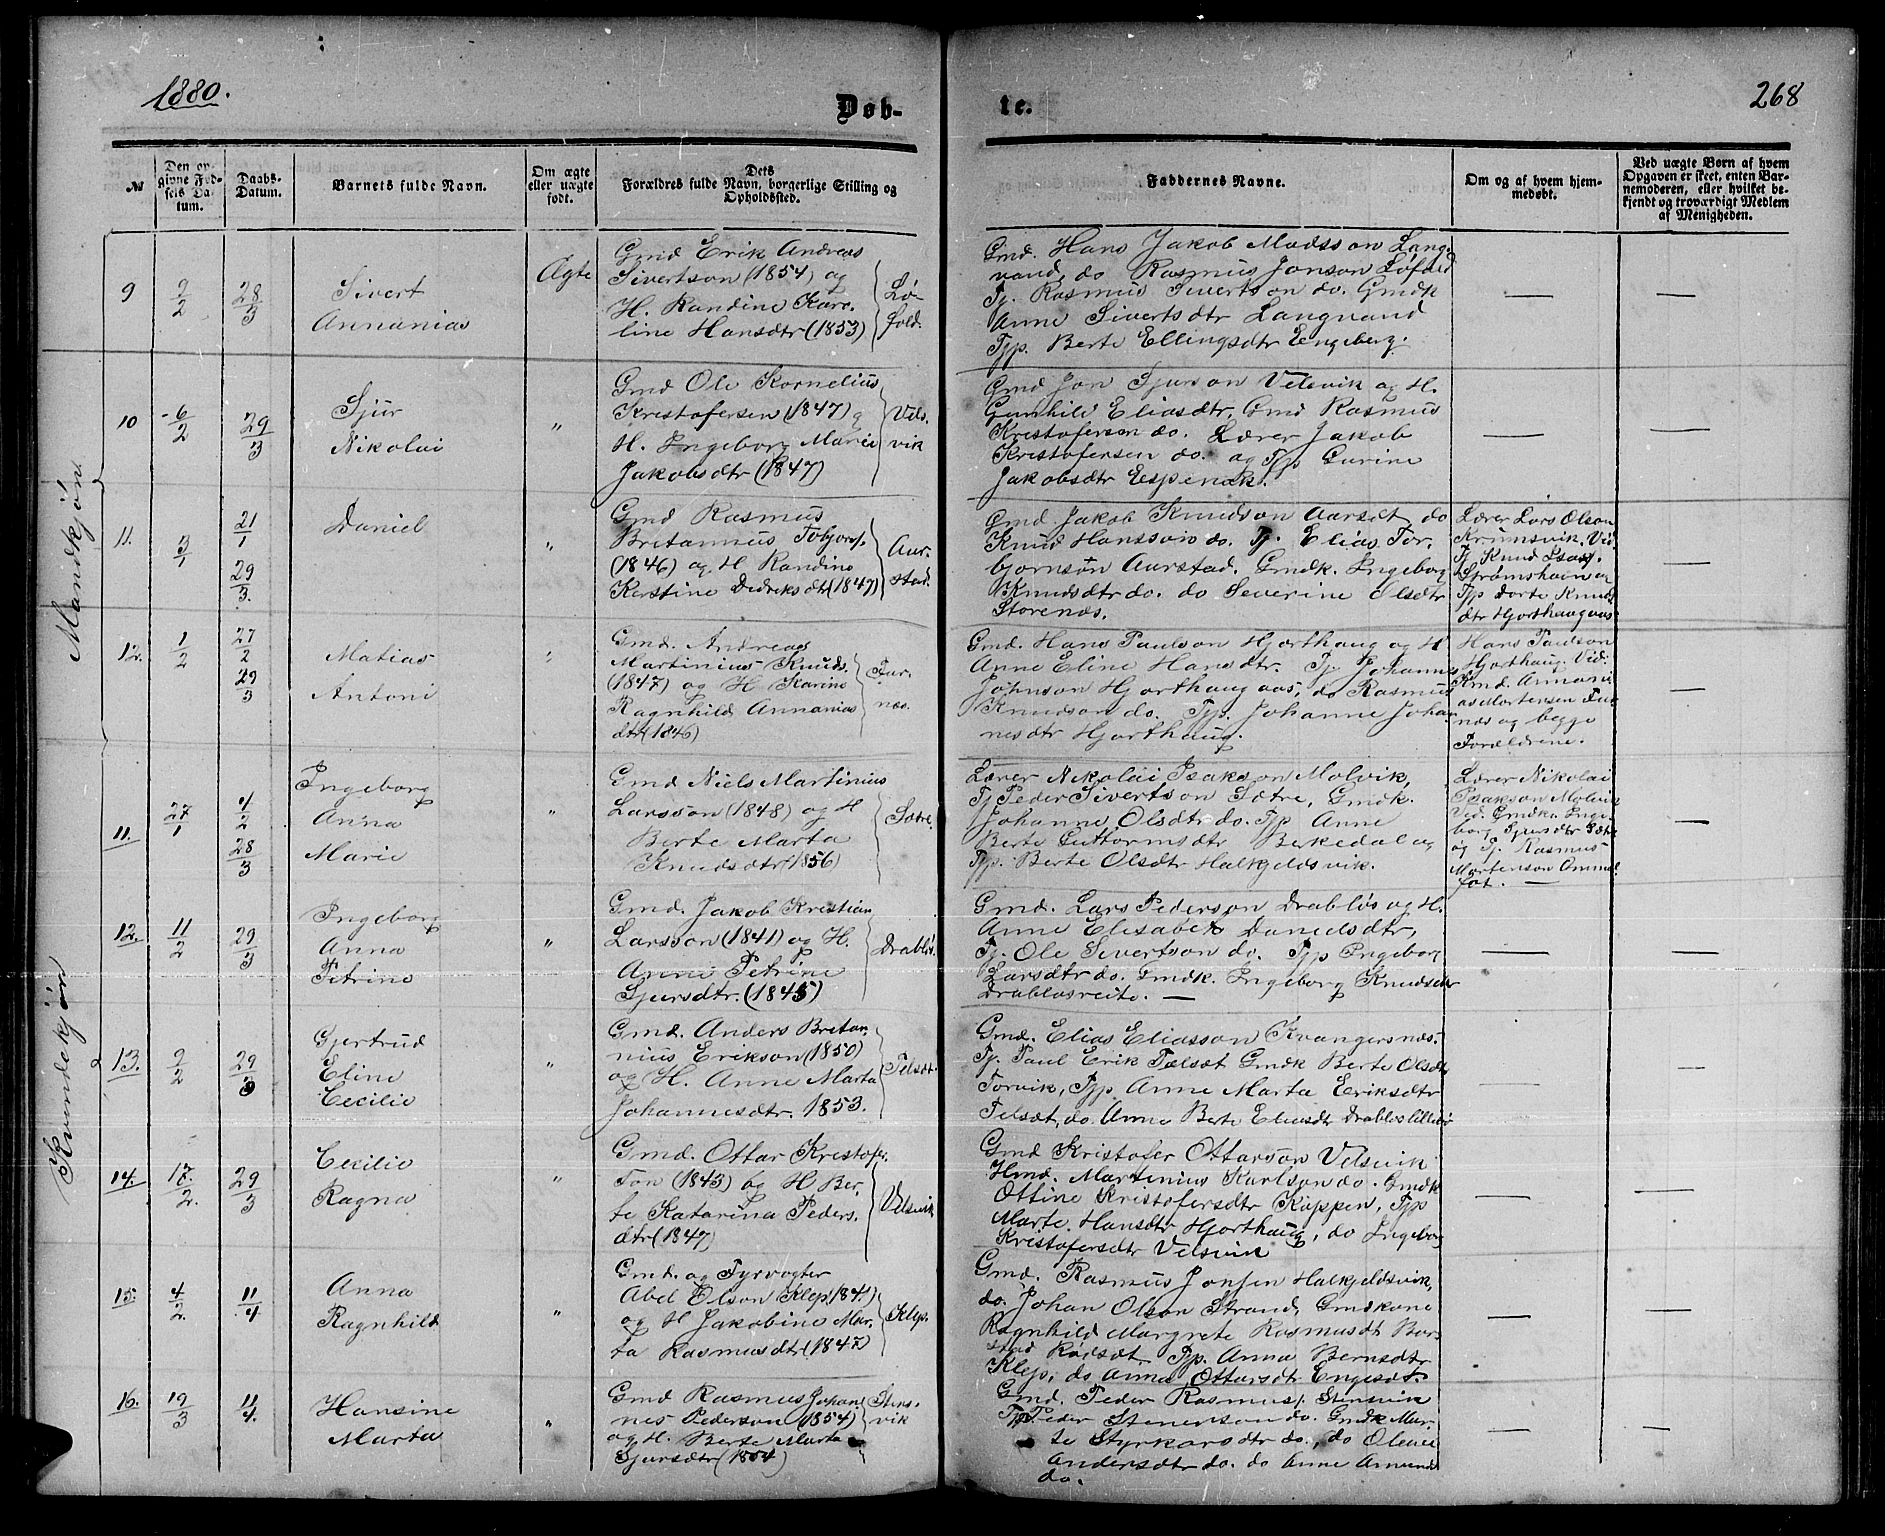 1880.
Døb-
te.
268
№
Den op-
givne Fød-
sels Da-
tum.
Daabs-
Datum.
Barnets fulde Navn.
Om ægte
eller uægte
født.
Dets
Forældres fulde Navn, borgerlige Stilling og
Opholdssted.
Faddernes Navne.
Om og af hvem hjem-
medøbt.
Ved uægte Børn af hvem
Opgaven er skeet, enten Bar-
nemoderen, eller hvilket be-
kjendt og troværdigt Medlem
af Menigheden.
Mandkjøn
9
2/2
28/3
Sivert
Annanias
Ægte
Gmd Erik Andreas
Sivertson (1854) og
H. Randine Karo-
line Hansdtr (1853)
Lø-
fold.
Gmd. Hans Jakob Madsson Lang-
vand, do Rasmus Jonson Løfold
Tj. Rasmus Sivertson do. Gmdk
Anne Sivertsdtr Langvand
Tjp. Berte Ellingsdtr Engeberg.
—
—
10
6/2
29/3
Sjur
Nikolai
"
Gmd Ole Kornelius
Kristofersen (1847) og
H. Ingeborg Marie
Jakobsdtr (1847)
Vels-
vik
Gmd Jon Sjurson Velsvik og H.
Gunhild Eliasdtr, Gmd Rasmus
Kristofersen do. Lærer Jakob
Kristofersen do. og Tjp Gurine
Jakobsdtr Espenak.
—
—
11.
3/1
21/1
29/3.
Daniel
"
Gmd Rasmus
Bretannus Tobjørs.
(1846) og H Randine
Kerstine Dedreksdtr (1847)
Aur-
stad.
Gmd Jakob Knudson Aarsdt, do
Knud Hansson do. Tj. Elias Tor-
bjørnson Aurstad. Gmdk. Ingeborg
Knudsdtr do. do Severine Olsdtr
Storenæs.
Lærer Lars Olson
Krumsvik. Vid.
Tj Knud Isaks.
Strømshavn og
Tjp Dorte Knuds
dtr Hjorthaugaas
—
12.
1/2
27/2
29/3
Matias
Antoni
"
Gmd. Andreas
Martinius Knuds.
(1847) og H Karine
Ragnhild Annanias
dtr (1846)
Fur-
næs.
Gmd. Hans Paulson Hjorthaug og H
Anne Eline Hansdtr. Tj. Johannes
Johnson Hjorthaugaas, do Rasmus
Knudson do. Tjp. Johanne Johan
nesdtr Hjorthaug.
Hans Paulson
Hjorthaug. Vid:
Kmd. Annani
as Mortensen Fur
næs og begge
Forældrene.
—
Kvindekjøn
11.
27/1
4/2
28/3
Ingeborg
Anna
Marie
"
Gmd Niels Martinius
Larsson (1848) og H
Berte Marta
Knudsdtr (1856)
Sætre.
Lærer Nikolai Isakson Molvik,
Tj Peder Sivertson Sætre, Gmdk.
Johanne Olsdtr do. Tjp Anne
Berte Guttormsdtr Berkedal og
Tjp. Berte Olsdtr Halkjeldsvik.
Lærer Nikolai
Isakson Molvik
Vid. Gmdk. Inge-
borg Sjursdtr Sætre
og Tj. Rasmus
Mortenson Ommel
fot. —
—
12.
11/2
29/3
Ingeborg
Anna
Petrine
"
Gmd. Jakob Kristian
Larsson (1841) og H.
Anne Petrine
Sjursdtr. (1845)
Drabløs.
Gmd. Lars Pederson Drabløs og H.
Anne Elisabet Danielsdtr,
Tj. Ole Sivertson do. Tjp Ingeborg
Larsdtr do. Gmdk. Ingeborg Knudsdtr
Drabløsreite. —
—
—
13.
2/2
29/3
Gjertrud
Eline
Cecilie
"
Gmd. Anders Bretan-
nius Erikson (1850)
og H. Anne Marta
Johannesdtr. 1853.
Telsæt.
Gmd. Elias Eliasson Kvangersnæs.
Tj. Paul Erik Telsæt Gmdk Berte Olsdtr
Torvik, Tjp Anne Marta Eriksdtr
Telsæt, do Anne Berte Eliasdtr Drabløs
—
—
14.
17./2.
29/3
Cecilie
Ragna
"
Gmd. Ottar Kristofer-
son (1845) og H Ber-
te Katarina Peders.
dtr (1847)
Velsvik
Gmd Kristofer Ottarson Velsvik
Hmd. Martinius Karlson do. Gmdk
Ottine Kristofersdtr Koppen, Tjp
Marte Hansdtr Hjorthaug, do Ingeborg
Kristofersdtr Velsvik
—
—
15.
4/2.
11/4
Anna
Ragnhild
"
Gmd. og Fyrvogter
Abel Olson Klep (184.)
og H Jakobine Mar-
ta Rasmusdtr (1847)
Klep.
Gmd. Rasmus Jonsen Halkjeldsvik,
do. Johan Olson Strand, Gmdkone
Ragnhild Margrete Rasmusdtr Bar-
stad Rødsæt, Tjp. Anna Berntsdtr
Klep, do Anna Ottarsdtr Engesdt.
—
—
16.
19/3
11/4.
Hansine
Marta
"
Gmd Rasmus Johan
nes Pederson (1854)
og H. Berte Marta
Sjursdtr (1854)
Stens-
vik
Gmd. Peder Rasmus. Stensvik
Tjp Peder Stenerson do. Gmdk Mar-
te Styrkarsdtr do., do Oline
Andersdtr do. do Anne Amunds
do.
—
—